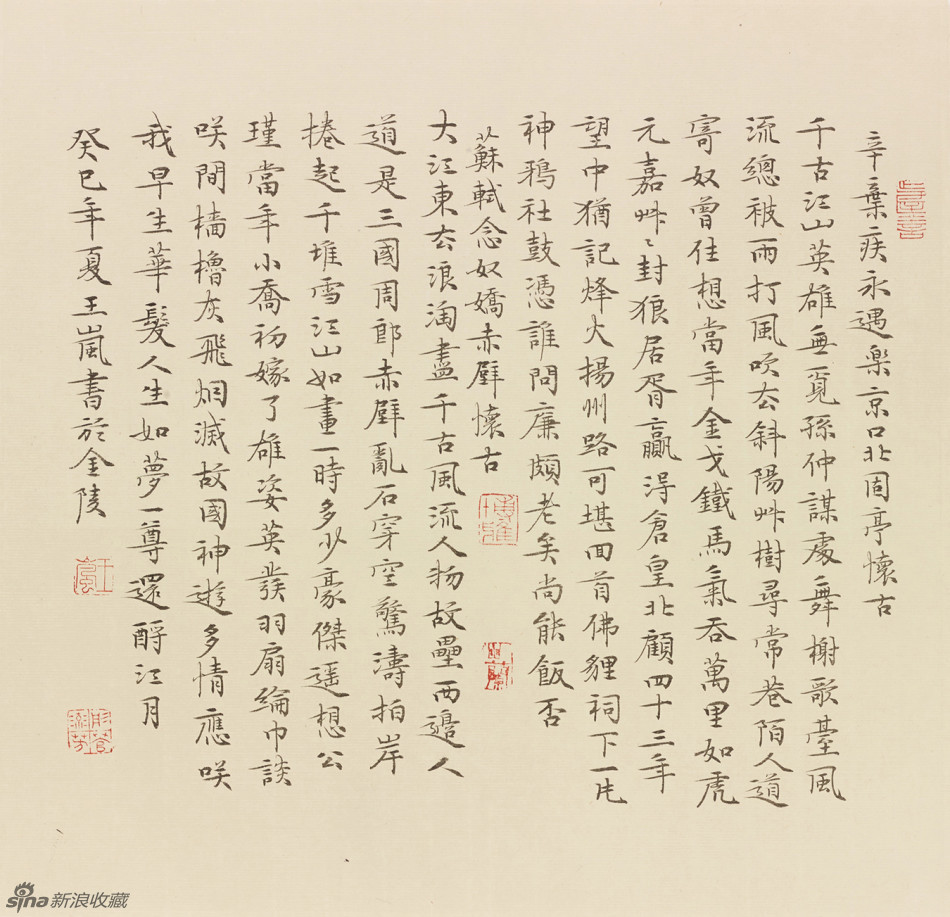 辛棄疾永遇樂京口北固亭懷古
千古江山英雄無覓孫仲謀處舞榭歌臺風
流總被雨打風吹去斜陽艸樹尋常巷陌人道
寄奴曾住想當年金戈鐵馬氣吞萬里如虎
元嘉艸〻封狼居胥贏得倉皇北顧四十三年
望中猶記烽火揚州路可堪回首佛貍祠下一片
神鴉社鼓憑誰問廉頗老矣尚能飯否
蘇軾念奴嬌赤壁懷古
大江東去浪淘盡千古風流人物故壘西邊人
道是三國周郎赤壁亂石穿空驚濤拍岸
捲起千堆雪江山如畫一時多少豪傑遥想公
瑾當年小喬初嫁了雄姿英發羽扇綸巾談
咲間檣櫓灰飛烟滅故國神遊多情應咲
我早生華髮人生如夢一尊還酹江月
癸巳年夏王嵐書於金陵
博雅
王嵐
sina新浪收藏